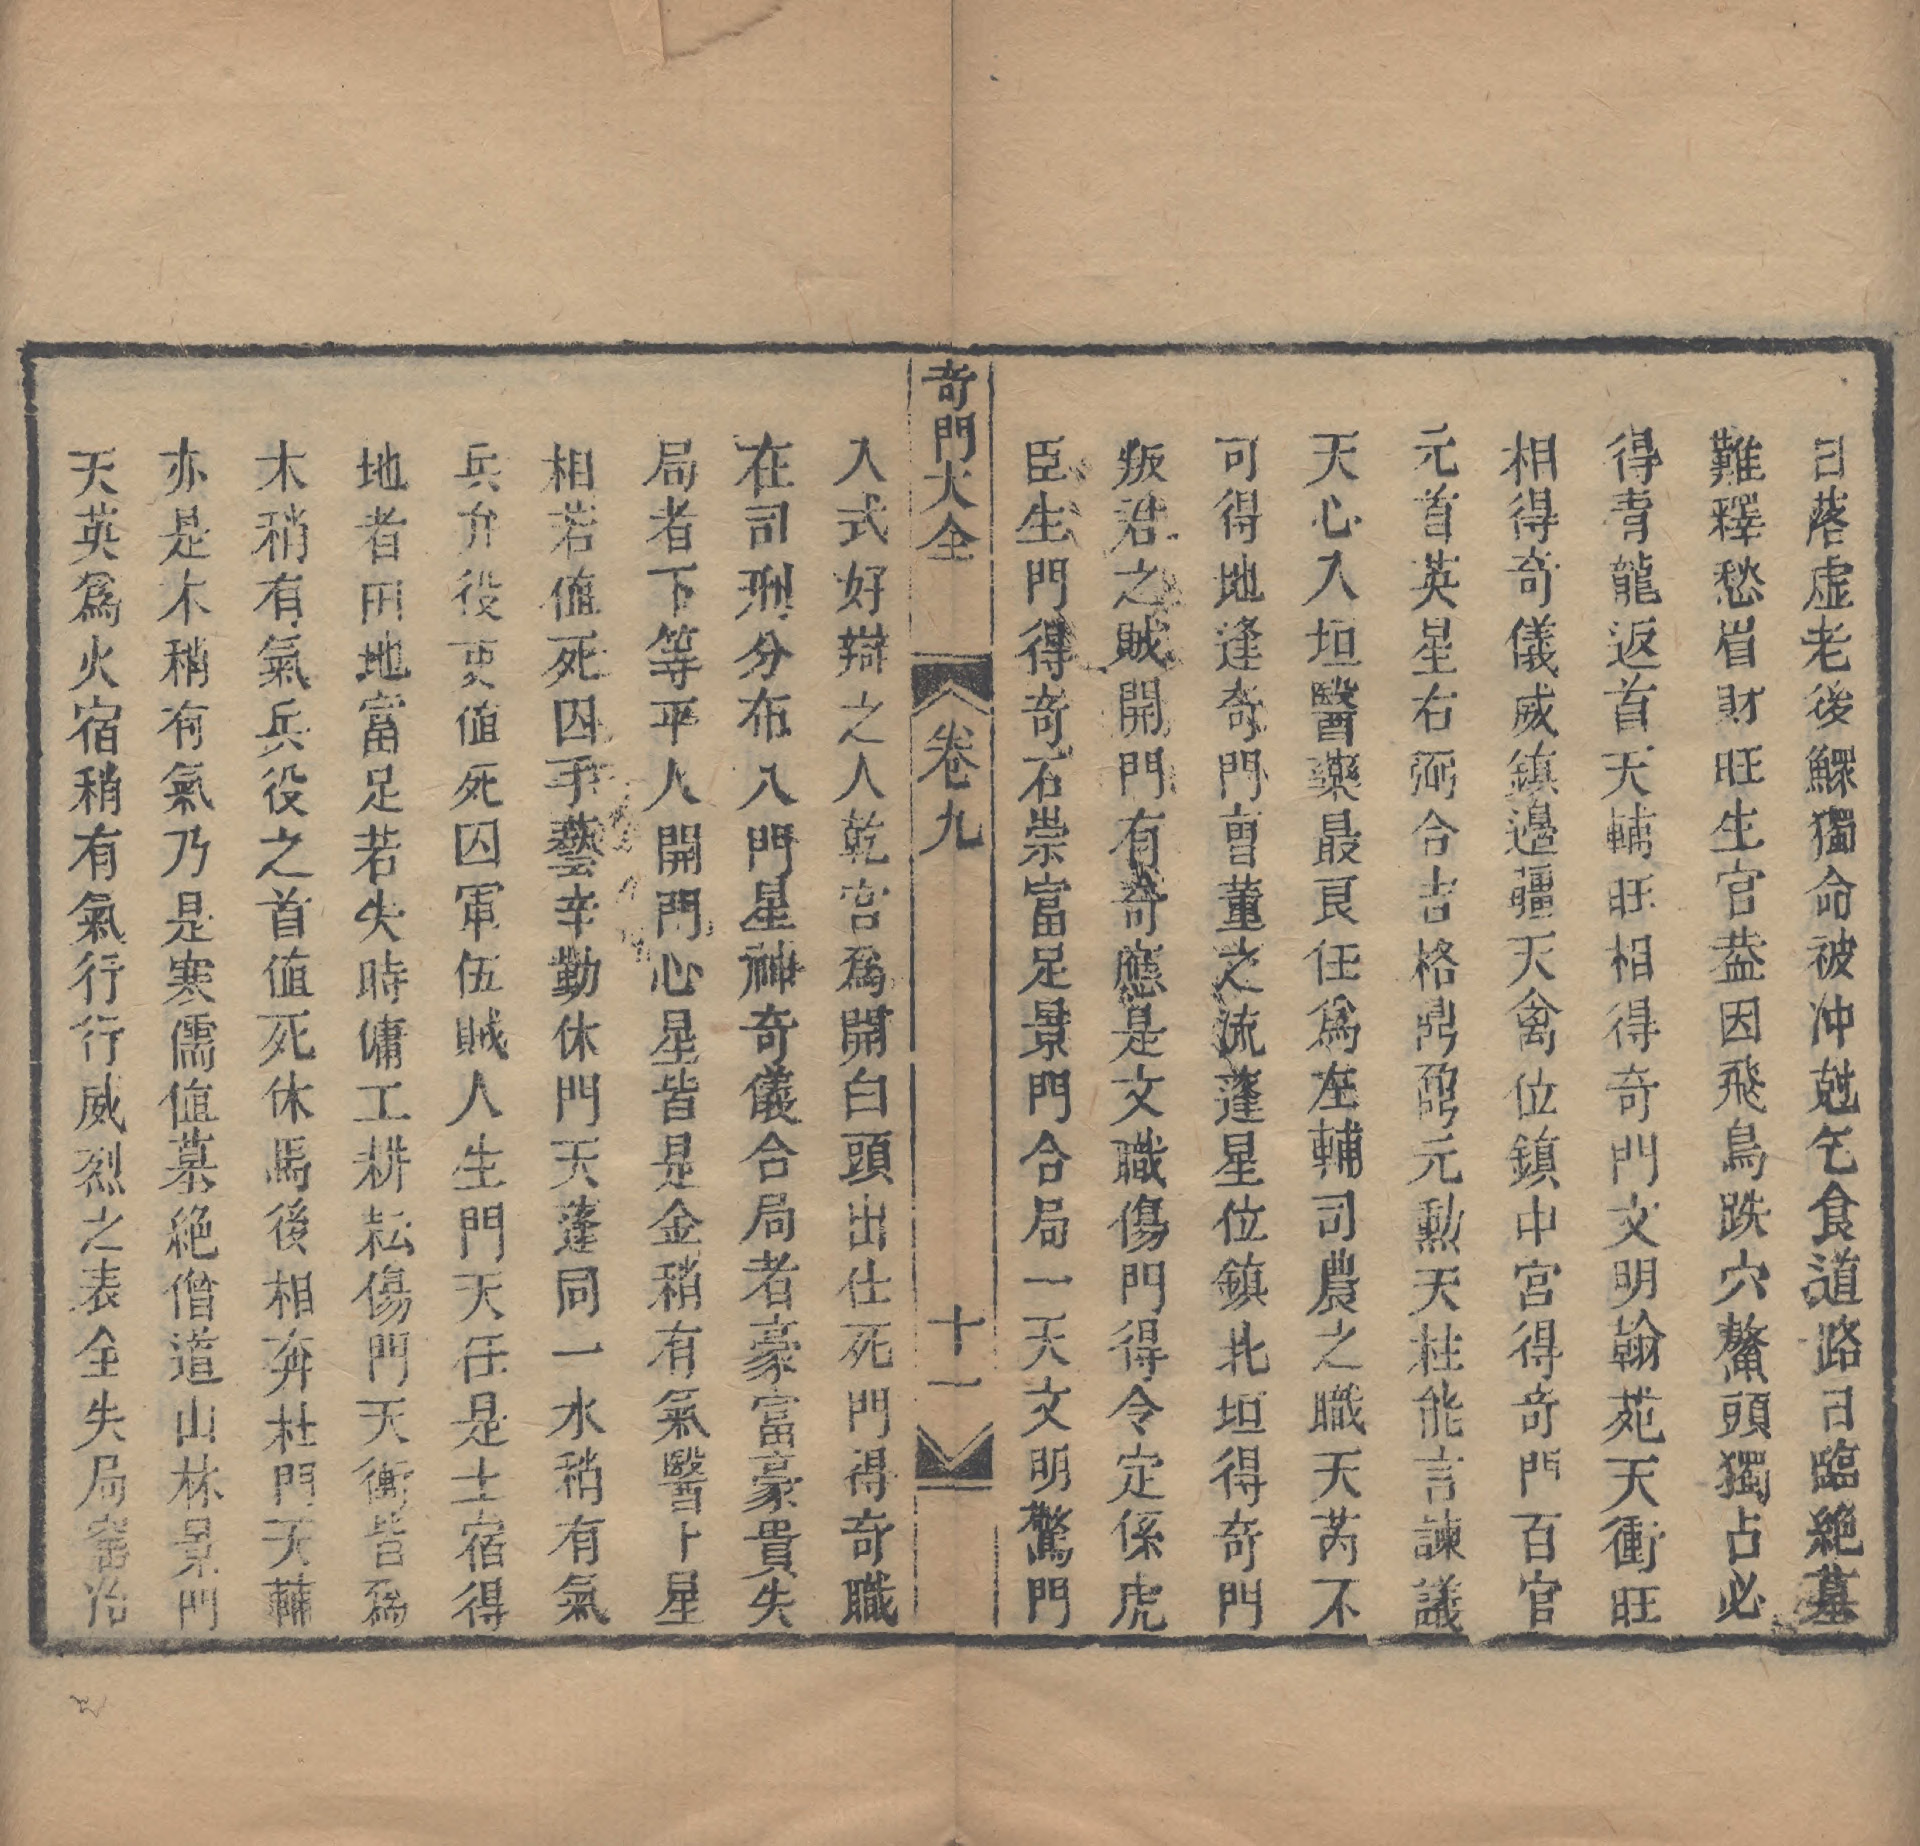 日落虛老後鰥獨命被冲尅乞食道路日臨絶墓
難釋愁眉財旺生官葢因飛鳥跌穴鰲頭獨占必
得青龍返首天輔旺相得奇門文明翰苑天衝旺
相得奇儀威鎮邊疆天禽位鎮中宮得奇門百官
元首英星右弼合吉格鼎鼐元勲天柱能言諫議
天心入垣醫藥最良任爲左輔司農之職天芮不
可得地逢奇門曹董之流蓬星位鎮北垣得奇門
叛君之賊開門有奇應是文職傷門得令定係虎
臣生門得奇石崇富足景門合局一天文明驚門
奇門大全 卷九 十一
入式好辯之人乾宮爲開白頭出仕死門得奇職
在司刑分布八門星神奇儀合局者豪富豪貴失
局者下等平人開門心星皆是金稍有氣醫卜星
相若值死囚手藝辛勤休門天蓬同一水稍有氣
兵弁役吏值死囚軍伍賊人生門天任是土宿得
地者田地富足若失時傭工耕耘傷門天衝皆爲
木稍有氣兵役之首值死休馬後相奔杜門天輔
亦是木稍有氣乃是寒儒值墓絶僧道山林景門
天英爲火宿稍有氣行行威烈之表全失局窰冶